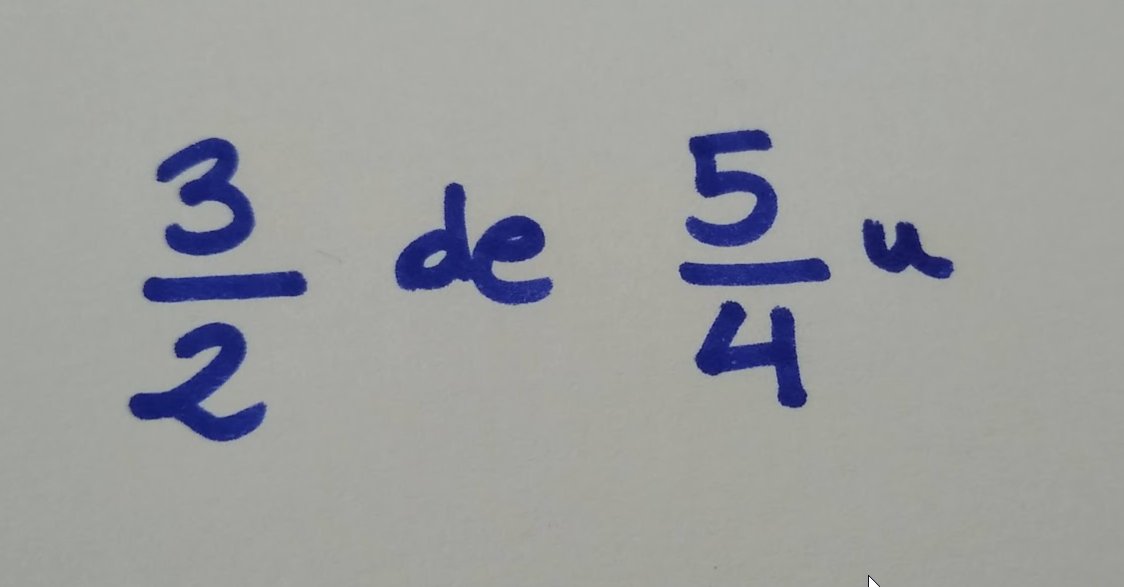 3/2 de 5/4 u